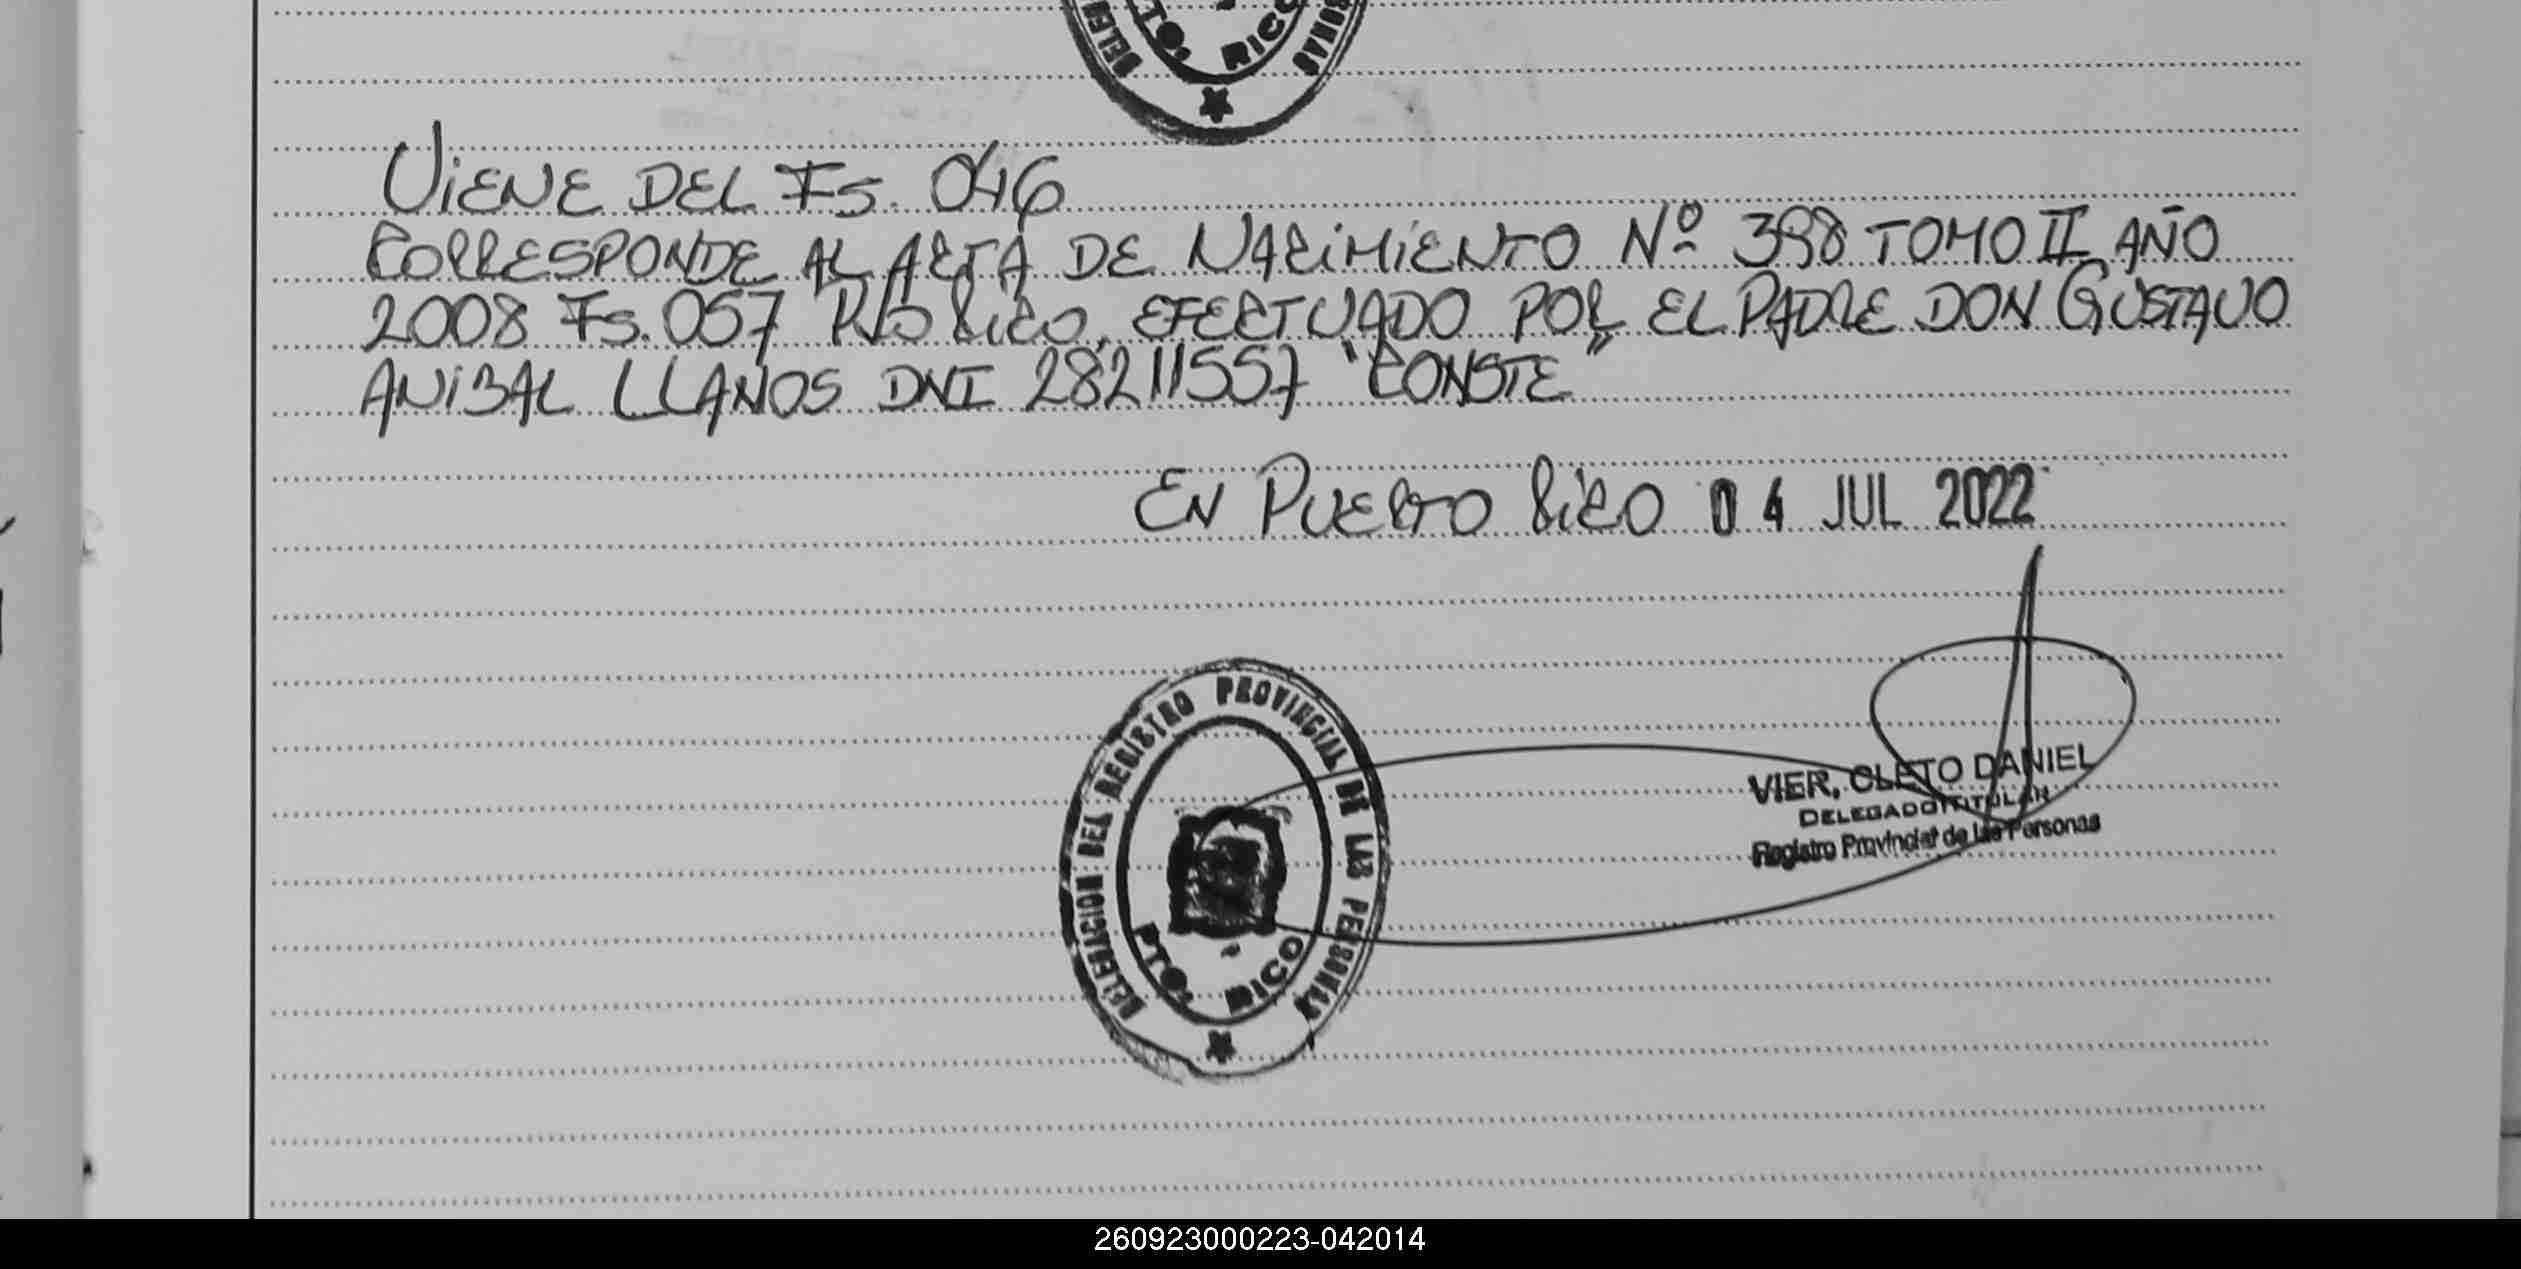 PTO. RICO
VIENE DEL Fs. 046
CORRESPONDE AL ACTA DE NACIMIENTO Nº 398 TOMO II AÑO
2008 Fs. 057 Pto Rico, EFECTUADO POR EL PADRE DON GUSTAVO
ANIBAL LLANOS DNI 28211557 "CONSTE"
EN PUERTO RICO 04 JUL 2022
DELEGACION DEL REGISTRO PROVINCIAL DE LAS PERSONAS
PTO. RICO
VIER, CLETO DANIEL
DELEGADO TITULAR
Registro Provincial de las Personas
260923000223-042014